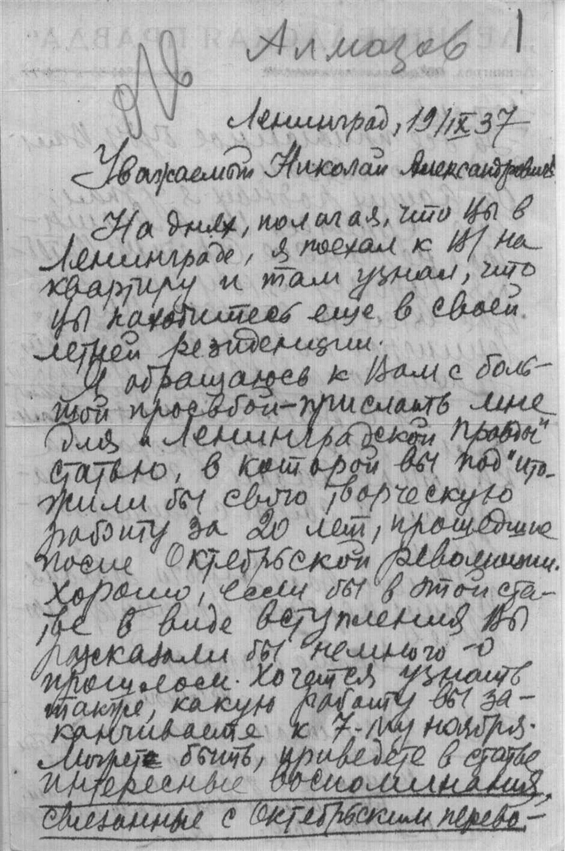 1
Алмазов
Ленинград, 19/IX 37
Уважаемый Николай Александрович
На днях, полагая, что Вы в
Ленинграде, я поехал к Вам на
квартиру и там узнал, что
Вы находитесь еще в своей
летней резиденции.
Я обращаюсь к Вам с боль-
шой просьбой – прислать мне
для "Ленинградской правды"
статью, в которой вы подъито-
жили бы свою творческую
работу за 20 лет, прошедшие
после Октябрьской революции.
Хорошо, если бы в этой ста-
тье в виде вступления Вы
рассказали бы немного о
прошлом. Хочется узнать
также, какую работу вы за-
канчиваете к 7-му ноября.
Может быть, приведете в статье
интересные воспоминания,
связанные с Октябрьским перево-